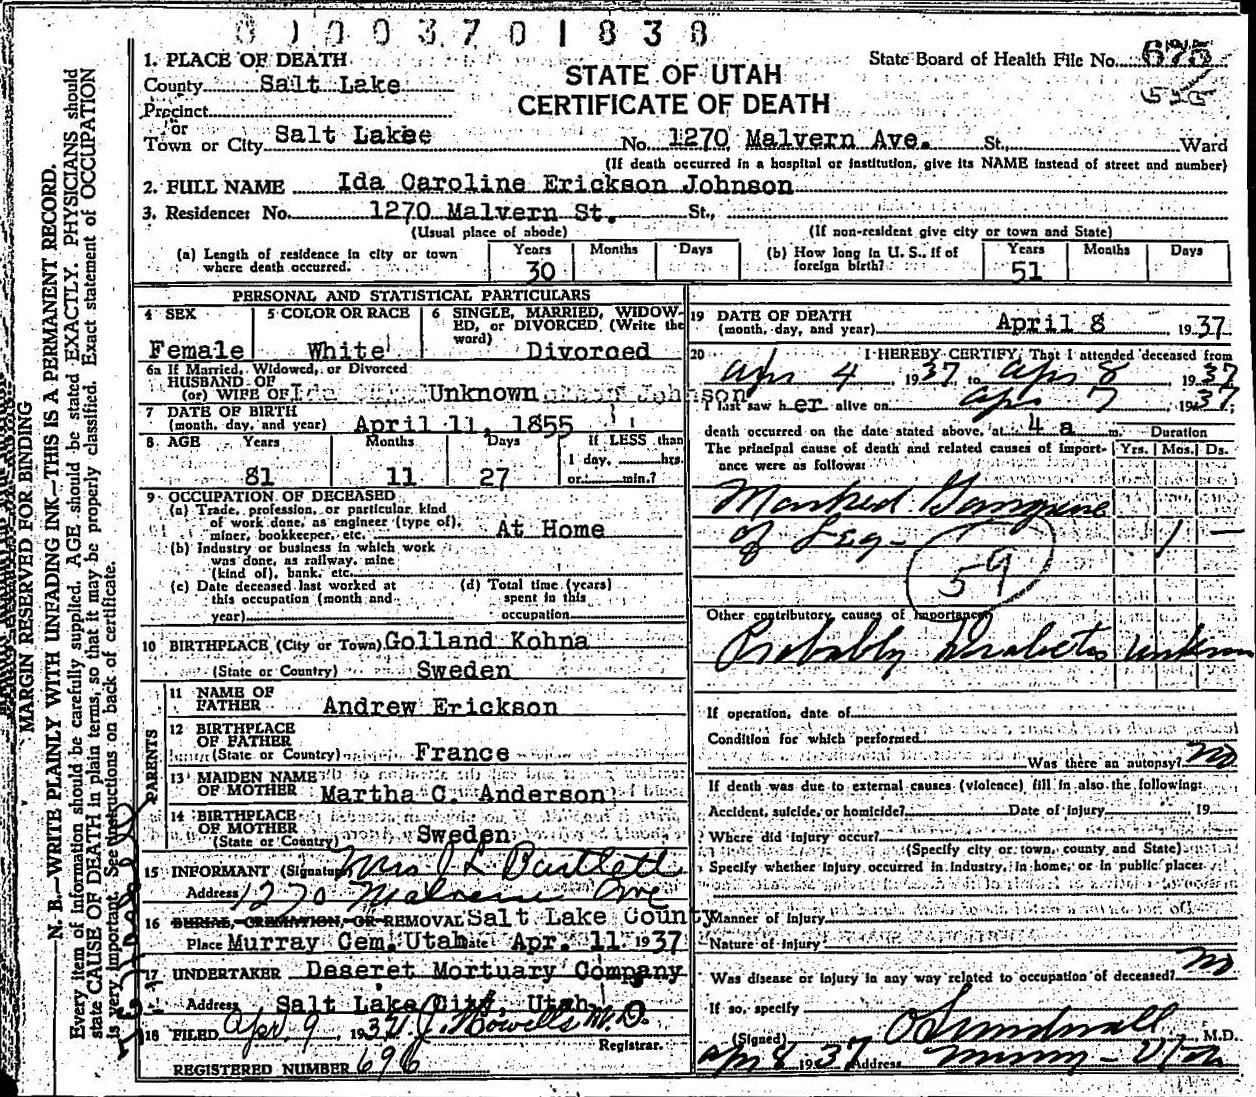 0100370 1838
1. PLACE OF DEATH
County Salt Lake
Precinct
or
Town or City Salt Lakee
STATE OF UTAH
CERTIFICATE OF DEATH
State Board of Health File No. 675
No. 1270 Malvern Ave. St., Ward
(If death occurred in a hospital or institution, give its NAME instead of street and number)
2. FULL NAME Ida Caroline Erickson Johnson
3. Residence: No. 1270 Malvern St. St.,
(Usual place of abode) (If non-resident give city or town and State)
(a) Length of residence in city or town where death occurred. Years 30 Months Days
(b) How long in U. S., if of foreign birth? Years 51 Months Days
PERSONAL AND STATISTICAL PARTICULARS
4 SEX Female
5 COLOR OR RACE White
6 SINGLE, MARRIED, WIDOWED, or DIVORCED (Write the word) Divorced
6a If Married, Widowed, or Divorced
HUSBAND OF
(or) WIFE OF Ida Unknown Johnson
7 DATE OF BIRTH
(month, day, and year) April 11, 1855
8 AGE Years Months Days If LESS than
1 day, hrs.
81 11 27 or min.?
9 OCCUPATION OF DECEASED
(a) Trade, profession, or particular kind
of work done, as engineer (type of),
miner, bookkeeper, etc. At Home
(b) Industry or business in which work
was done, as railway, mine
(kind of), bank, etc.
(c) Date deceased last worked at
this occupation (month and
year)
(d) Total time (years)
spent in this
occupation
10 BIRTHPLACE (City or Town) Golland Kohna
(State or Country) Sweden
PARENTS
11 NAME OF
FATHER Andrew Erickson
12 BIRTHPLACE
OF FATHER
(State or Country) France
13 MAIDEN NAME
OF MOTHER Martha C. Anderson
14 BIRTHPLACE
OF MOTHER
(State or Country) Sweden
15 INFORMANT (Signature) Mrs J L Bartlett
Address 1270 Malvern Ave
16 BURIAL, CREMATION, OR REMOVAL Salt Lake County
Place Murray Cem. Utah Date Apr. 11 1937
17 UNDERTAKER Deseret Mortuary Company
Address Salt Lake City, Utah
18 FILED Apr. 9, 1937 J. Howells M.D.
Registrar.
REGISTERED NUMBER 696
19 DATE OF DEATH
(month, day, and year) April 8, 1937
20 I HEREBY CERTIFY, That I attended deceased from
Apr 4 1937 to Apr 8 1937
I last saw her alive on Apr 7 1937;
death occurred on the date stated above, at 4 a m. Duration
The principal cause of death and related causes of importance were as follows: Yrs. Mos. Ds.
Marked Gangrene
of Leg - 1 —
59
Other contributory causes of importance:
Probably Diabetes unknown
If operation, date of
Condition for which performed
Was there an autopsy? No
If death was due to external causes (violence) fill in also the following:
Accident, suicide, or homicide? Date of injury 19
Where did injury occur?
(Specify city or town, county and State)
Specify whether injury occurred in industry, in home, or in public place:
Manner of injury
Nature of injury
Was disease or injury in any way related to occupation of deceased? No
If so, specify
(Signed) O Sundwall, M.D.
Apr 8 1937 Address Murray - Utah
MARGIN RESERVED FOR BINDING
N. B.—WRITE PLAINLY WITH UNFADING INK—THIS IS A PERMANENT RECORD.
Every item of information should be carefully supplied. AGE should be stated EXACTLY. PHYSICIANS should
state CAUSE OF DEATH in plain terms, so that it may be properly classified. Exact statement of OCCUPATION
is very important. See instructions on back of certificate.